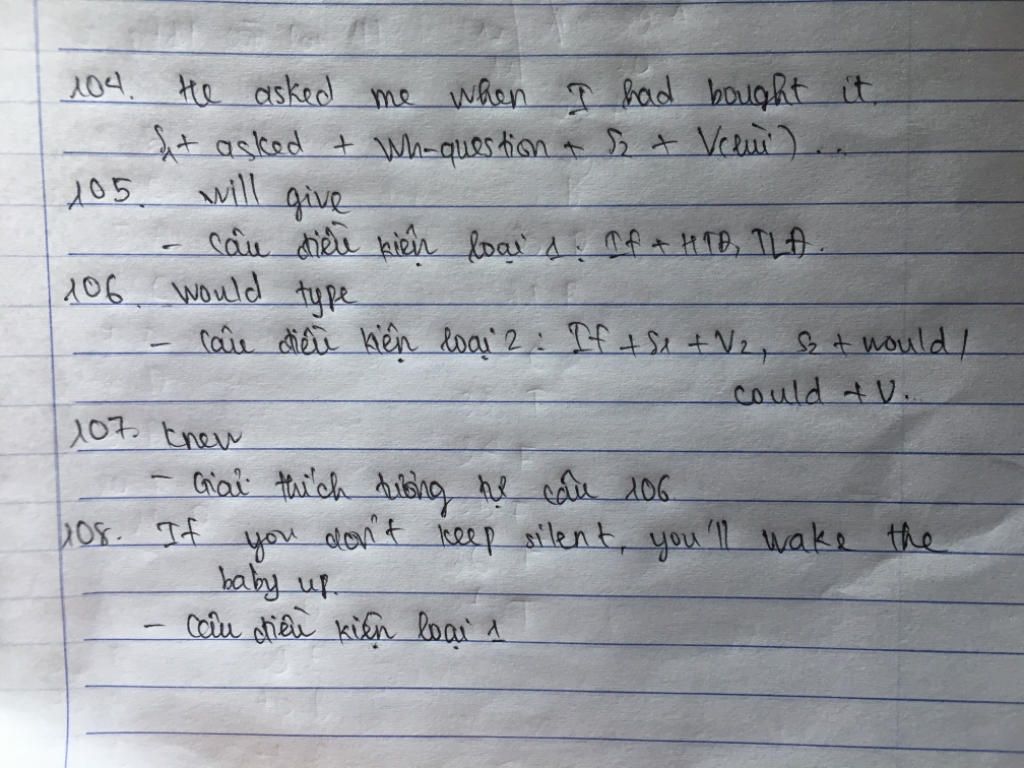 104. He asked me when I had bought it.
S1 + asked + Wh-question + S2 + V(lùi)...
105. will give
- Câu điều kiện loại 1: If + HTĐ, TLĐ.
106. would type
- Câu điều kiện loại 2: If + S1 + V2, S2 + would /
could + V.
107. knew
- Giải thích tương tự câu 106
108. If you don't keep silent, you'll wake the
baby up.
- Câu điều kiện loại 1